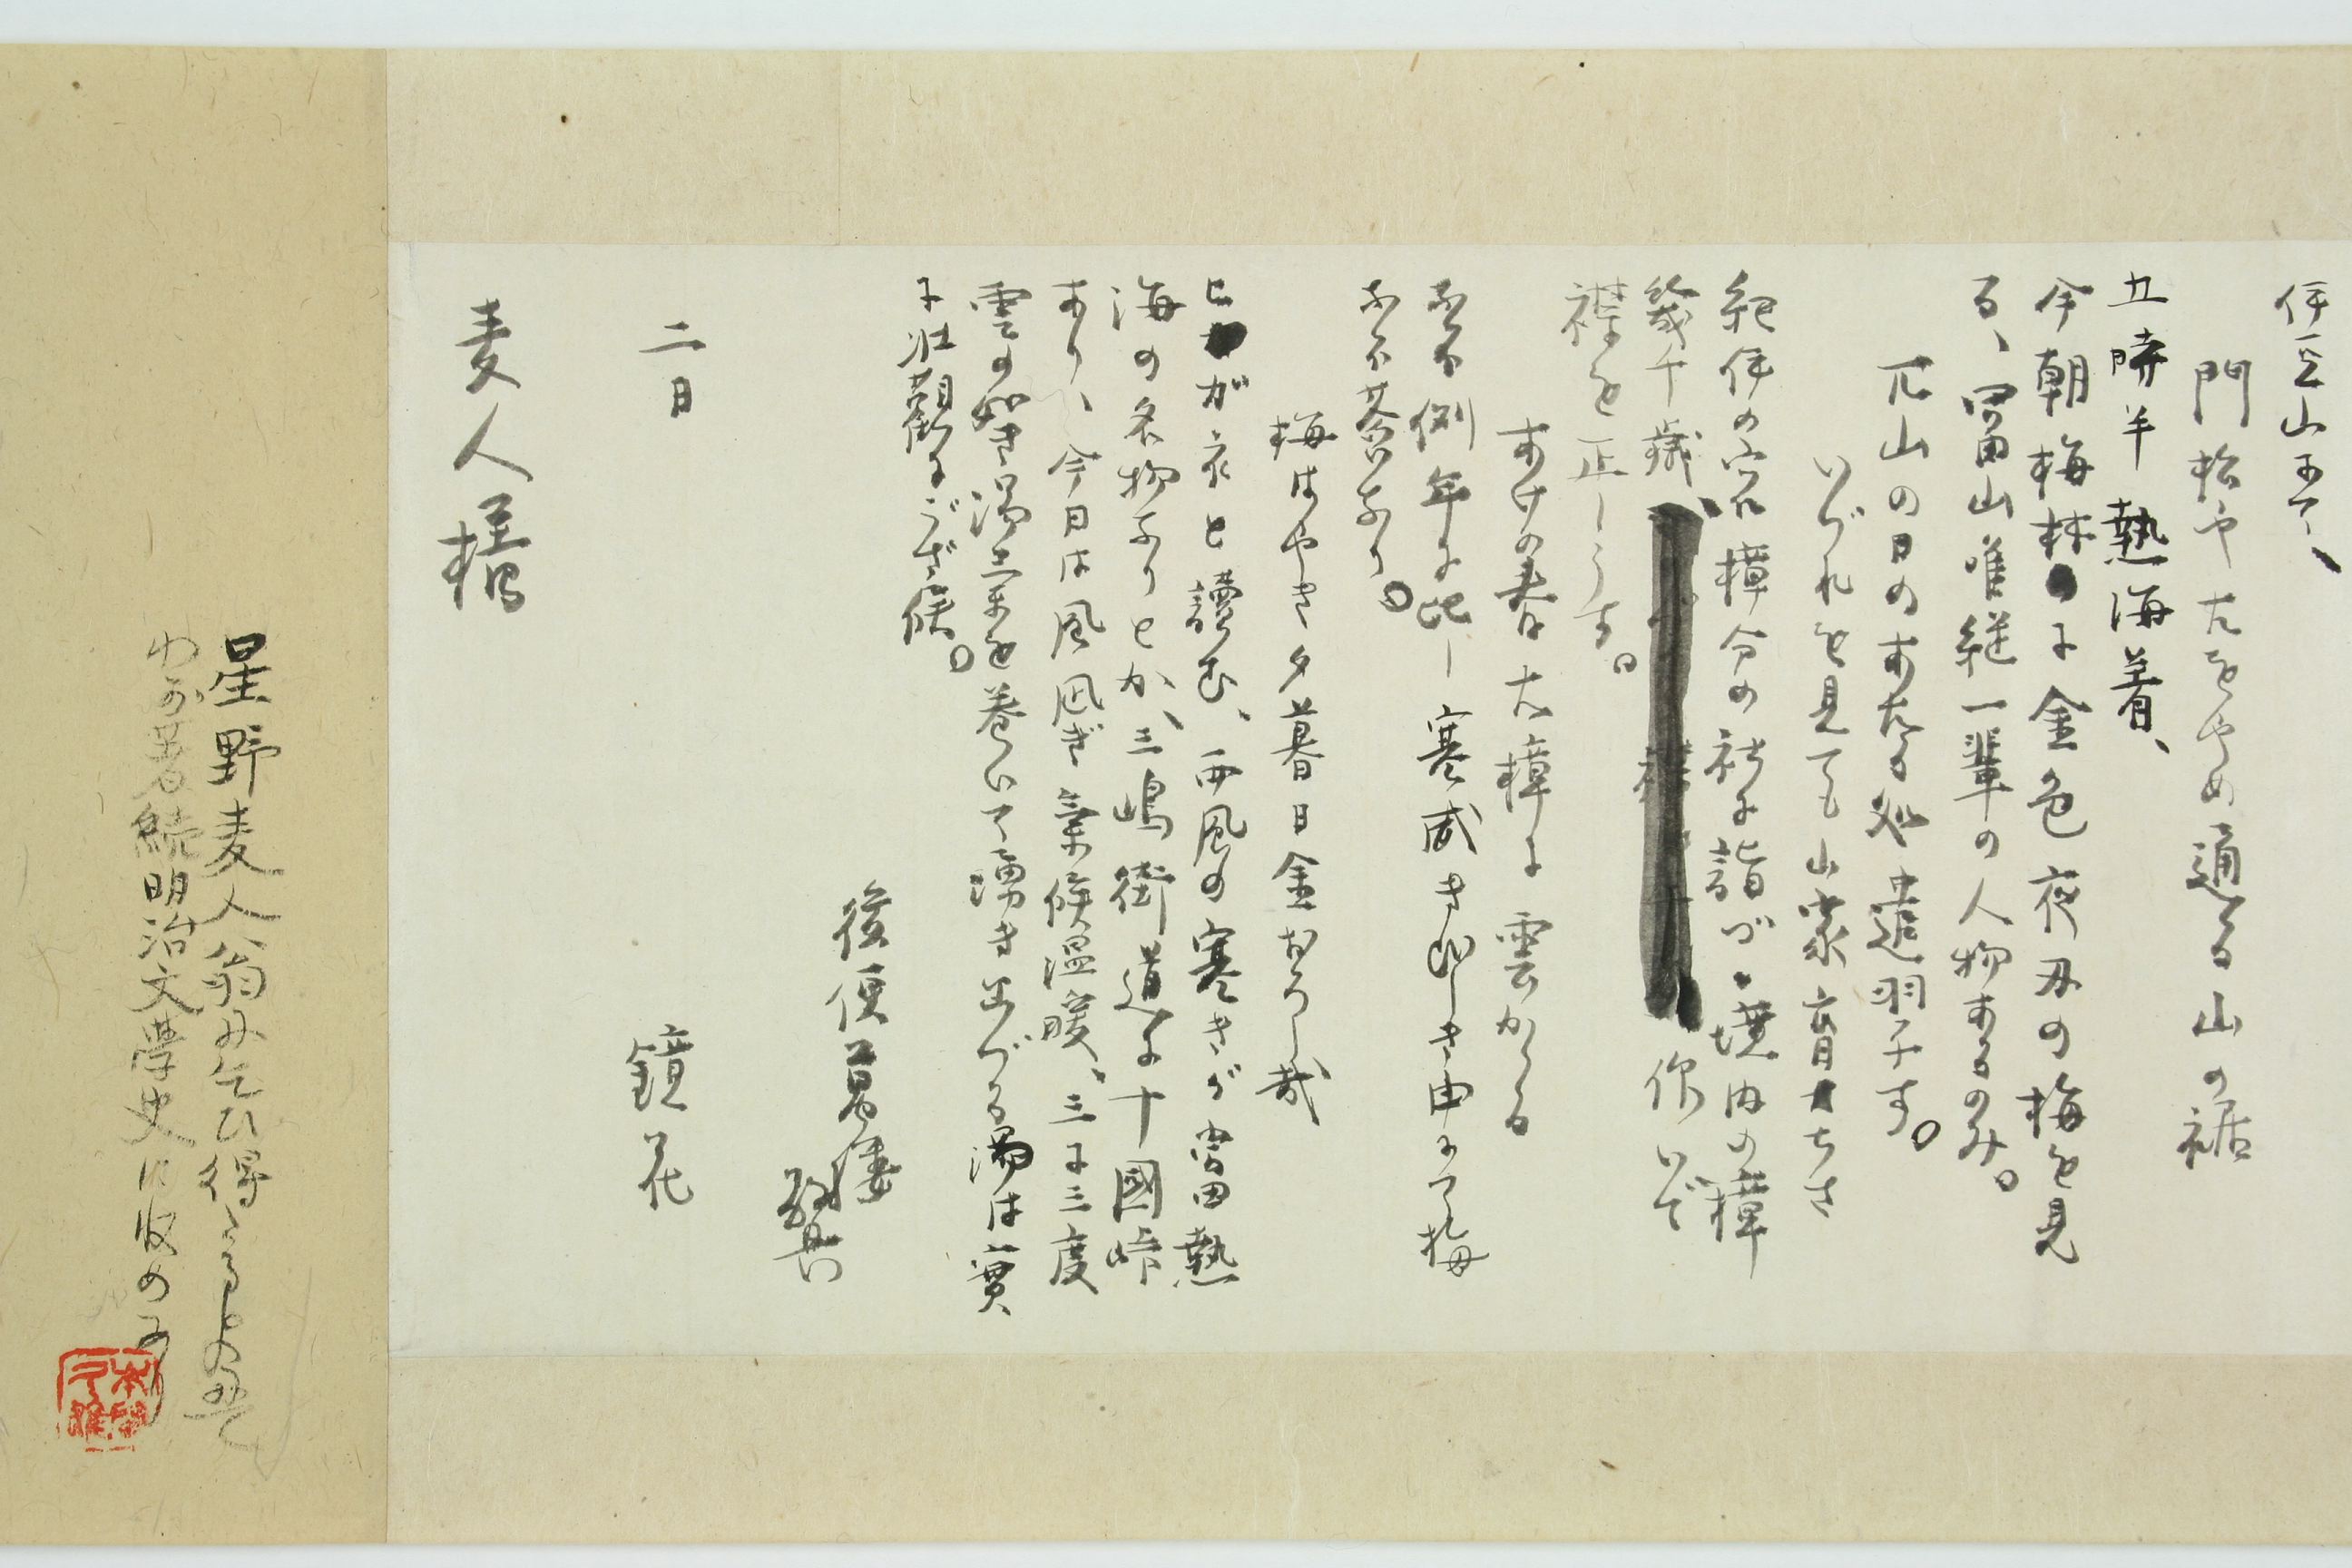 伊豆山にて、
門松やたをやめ通る山の裾
五時半熱海着、
今朝梅林に金色夜叉の梅を見
る、富山唯継一輩の人物あるのみ。
山の日のあたる処遣羽子す。
いづれを見ても山家育ちさ
紀伊の宮樟分の社に詣づ、境内の樟
幾千歳、
襟を正しうす。
あけの春大樟に雲かゝる
例年に比し寒威きびしき由にて梅
なほ蕾なり。
梅はやき夕暮日金おろし哉
ヒガネと讀む、西風の寒きが當熱
海の名物なりとか、三嶋街道に十國峠
あり、今日は風凪ぎ氣候温暖、三に三度
雲の如き湯氣を巻いて湧き出づる湯は實
に壮觀にござ候。
後便萬縷
二日
鏡花
麦人様
星野麦人翁に乞ひ得
わが著続明治文學史に収め